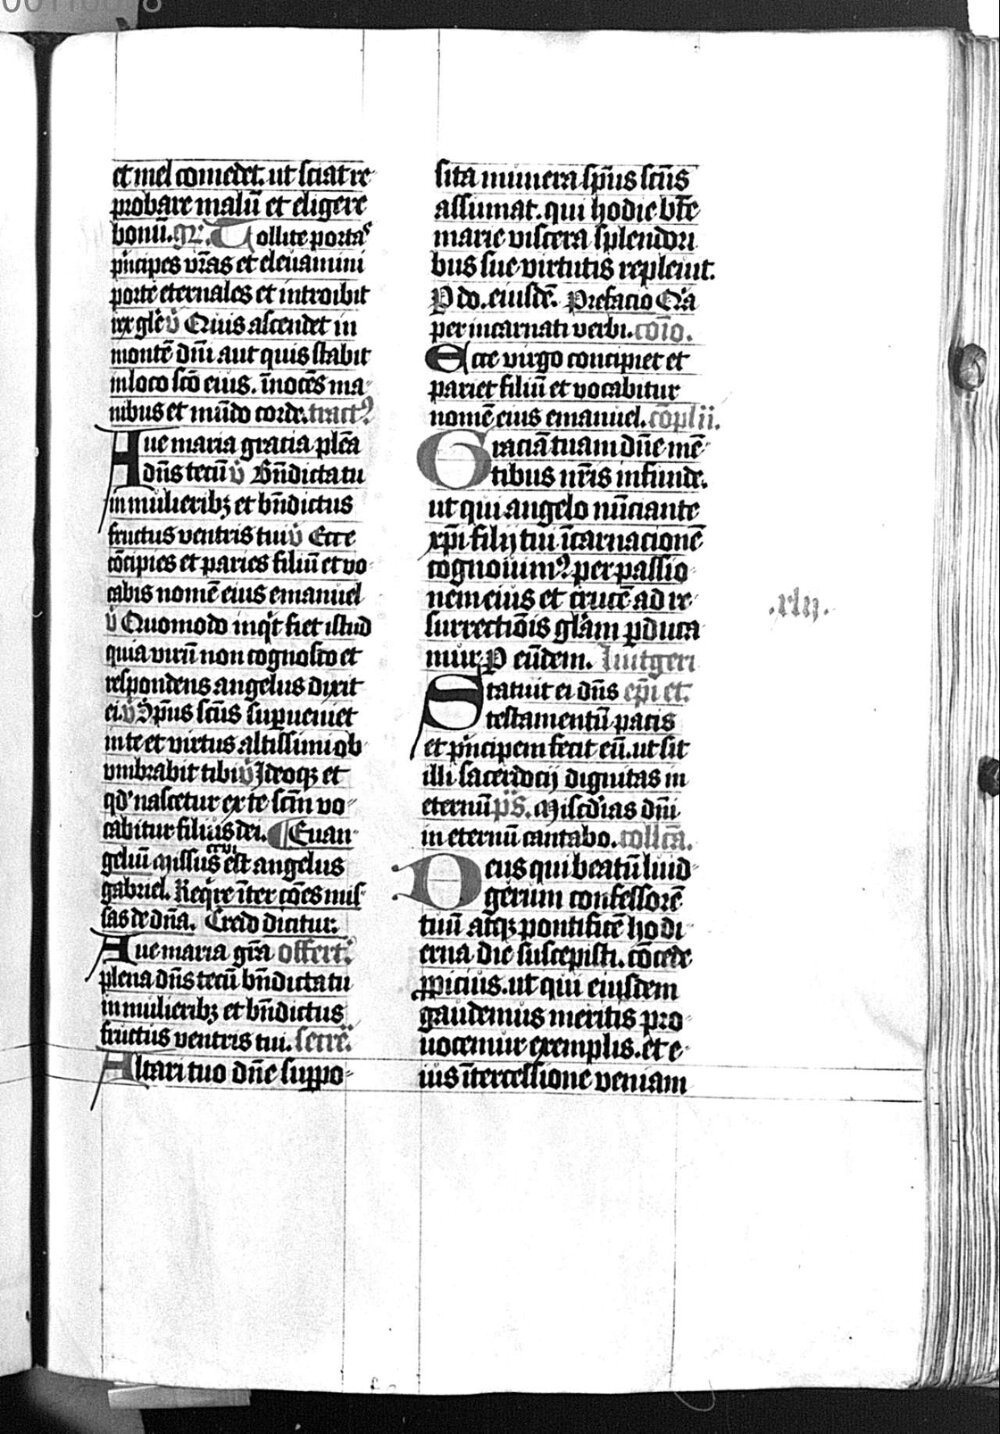 et mel comedet. ut sciat re
probare malū et eligere
bonū. gr̄. Tollite portas
pͥncipes vr̄as et eleuamini
porte eternales et introibit
rex gl̄e v̄ Quis ascendet in
montē dn̄i aut quis stabit
in loco sc̄o eius. īnocēs ma
nibus et mūdo corde. tractꝰ
Aue maria gracia plēa
dn̄s tecū v̄ Bn̄dicta tu
in mulieribꝫ et bn̄dictus
fructus ventris tui v̄ Ecce
cōcipies et paries filiū et vo
cabis nomē eius emanuel
v̄ Quomodo inqͥt fiet istud
quia virū non cognosco et
respondens angelus dixit
ei. v̄ Sp̄us sc̄us supueniet
in te et virtus altissimi ob
vmbrabit tibi v̄ Ideoqꝫ et
qd' nascetur ex te sc̄m vo
cabitur filius dei. Euan
geliū Missus est angelus
gabriel. Reqͥre īter cōes mis
sas de dn̄a. Credo dicitur.
Aue maria gr̄a offert.
plena dn̄s tecū bn̄dicta tu
in mulieribꝫ et bn̄dictus
fructus ventris tui. secre.
Altari tuo dn̄e suppo
sita munera sp̄us sc̄us
assumat. qui hodie bt̄e
marie viscera splendori
bus sue virtutis repleuit.
P do. eiusdē. Prefacio Q̄a
per incarnati verbi. cōio.
Ecce virgo concipiet et
pariet filiū et vocabitur
nomē eius emanuel. cōplīi.
Graciā tuam dn̄e mē
tibus nr̄is infunde.
ut qui angelo nūciante
xp̄i filij tui īcarnacionē
cognouimꝰ. per passio
nem eius et crucē ad re
surrectiōis gl̄am pduca
mur. P eūdem. luitgeri
Statuit ei dn̄s ep̄i et.
testamentū pacis
et pͥncipem fecit eū. ut sit
illi sacerdocij dignitas in
eternū p̄s. Misc̄dias dn̄i
in eternū cantabo. collc̄a.
Deus qui beatū luid
gerum confessorē
tuū atqꝫ pontificē hodi
erna die suscepisti. cōcede
ppicius. ut qui eiusdem
gaudemus meritis pro
uocemur exemplis. et e
ius ītercessione veniam